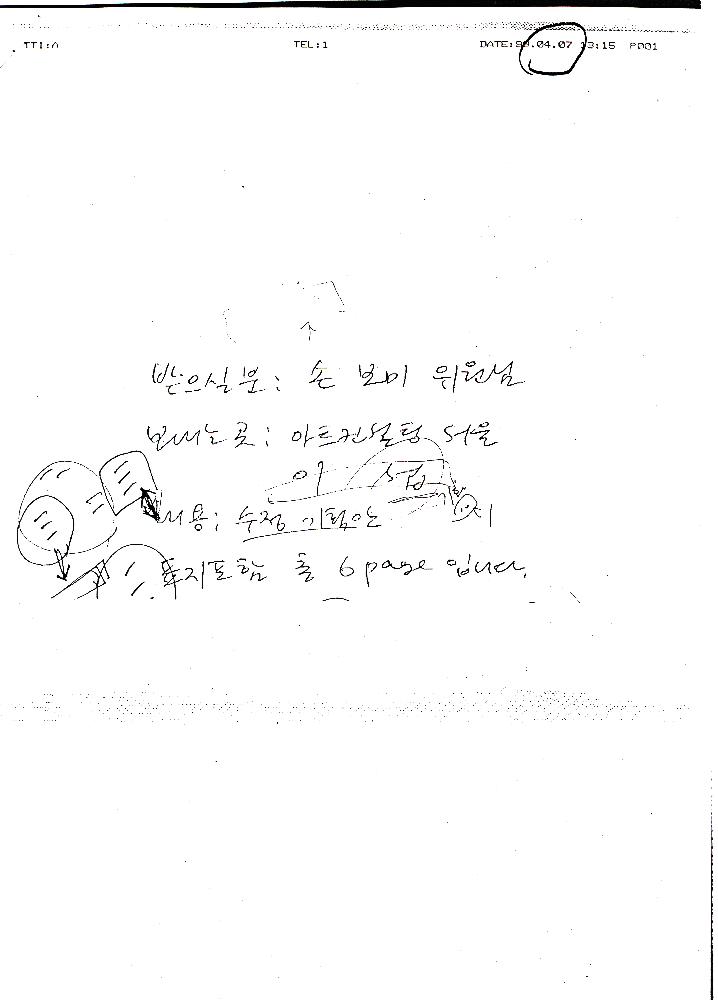 TTI:A TEL:1 DATE:99.04.07 13:15 P001
받으실 분: 손 보미 위원님
보내는 곳: 아트컨설팅 서울
이 섭
내용: 수정 기획안
표지포함 총 6 page 입니다.